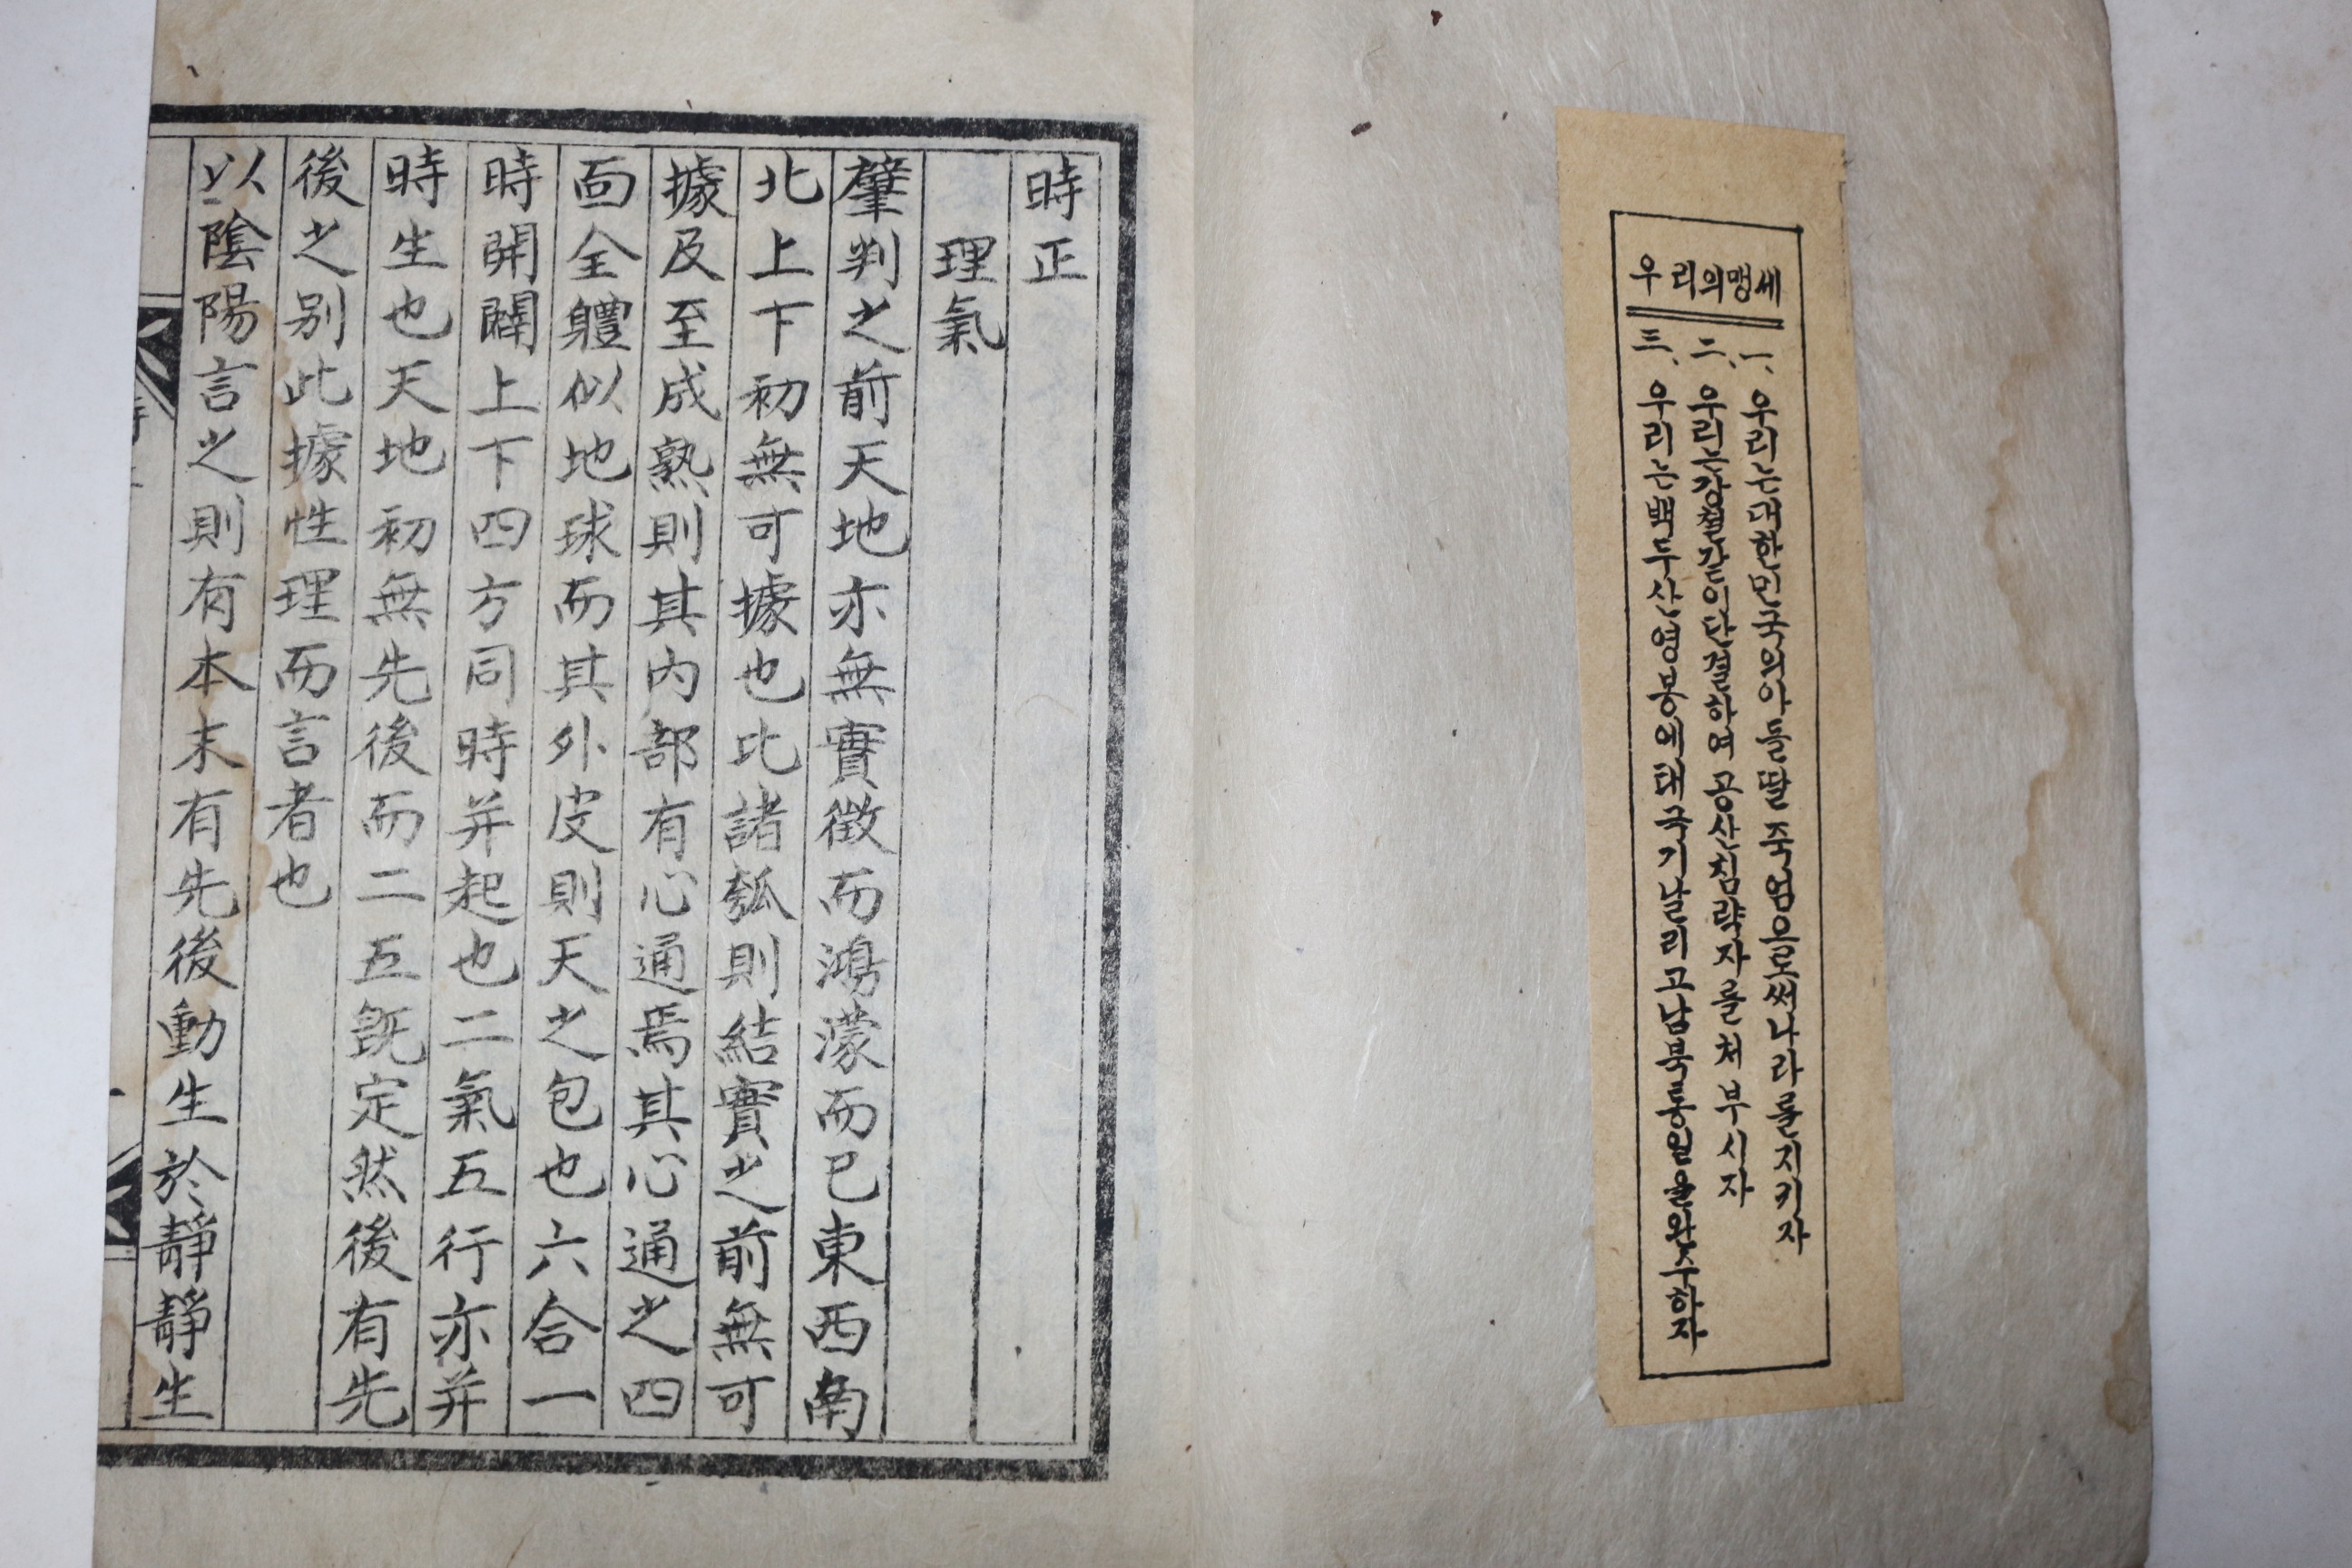 우리의맹세
一、우리는대한민국의아들딸죽엄으로써나라를지키자
二、우리는강철같이단결하여공산침략자를처부시자
三、우리는백두산영봉에태극기날리고남북통일을완수하자
時正
理氣
肇判之前天地亦無實徴而鴻濛而已東西南
北上下初無可據也比諸瓠則結實之前無可
據及至成熟則其内部有心通焉其心通之四
面全軆似地球而其外皮則天之包也六合一
時開闢上下四方同時并起也二氣五行亦并
時生也天地初無先後而二五旣定然後有先
後之别此據性理而言者也
以陰陽言之則有本末有先後動生於靜靜生